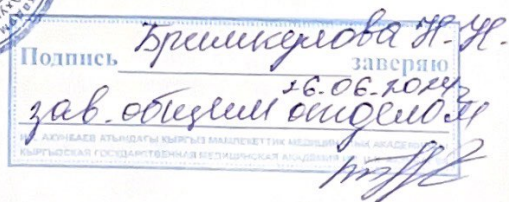 Бримкулова Н.Н.
Подпись заверяю
26.06.2024
зав. общим отделом
И.К. АХУНБАЕВ АТЫНДАГЫ КЫРГЫЗ МАМЛЕКЕТТИК МЕДИЦИНАЛЫК АКАДЕМИЯ
КЫРГЫЗСКАЯ ГОСУДАРСТВЕННАЯ МЕДИЦИНСКАЯ АКАДЕМИЯ